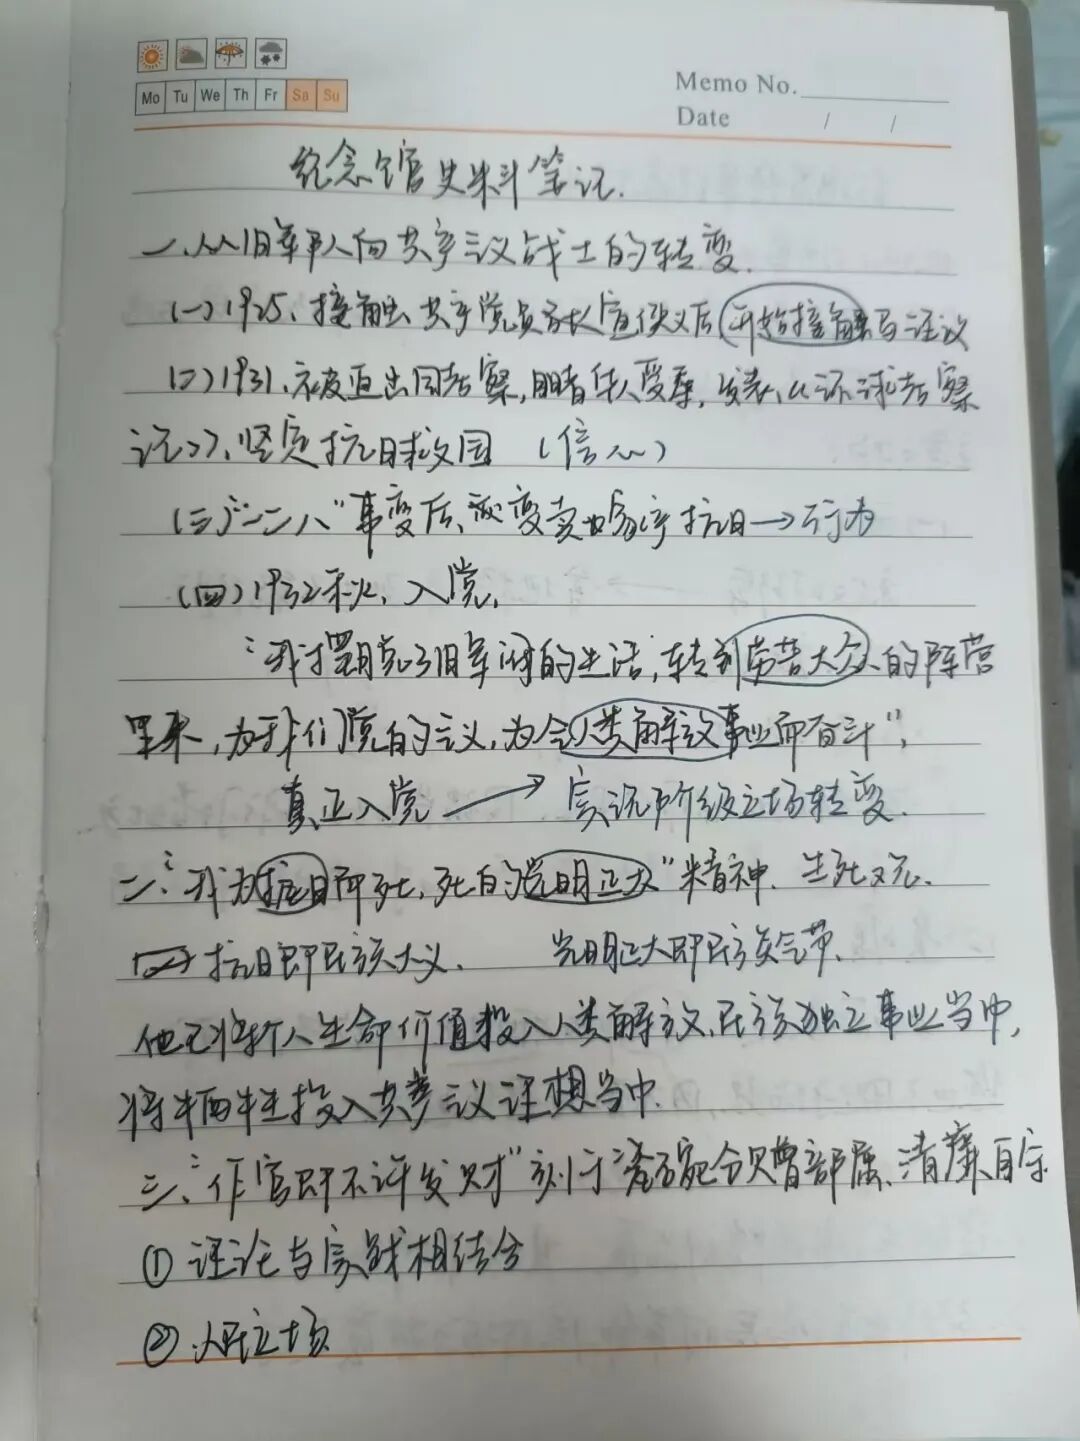 Memo No.
Mo Tu We Th Fr Sa Su
Date / /
纪念馆史料笔记.
一、从旧军人向共产主义战士的转变.
(一)1925、接触共产党员 宣侠父后开始接触马主义
(二)1931、被逼出国考察,目睹华人受辱,发表《环球考察
记》、坚定抗日救国 (信心)
(三)"一二八"事变后、变卖家产抗日→行为
(四)1932秋、入党,
"我摆脱了旧军阀的生活,转到劳苦大众的阵营
里来,为了我们党的主义,为全人类解放事业而奋斗",
真正入党 → 实现阶级立场转变.
二、"我为抗日而死,死的光明正大"精神. 生死观.
抗日即民族大义. 光明正大即民族气节.
他已将个人生命价值投入人类解放、民族独立事业当中,
将牺牲投入共产主义理想当中.
三、"作官即不许发财"刻于瓷碗分赠部属、清廉自守
① 理论与实践相结合
② 人民立场